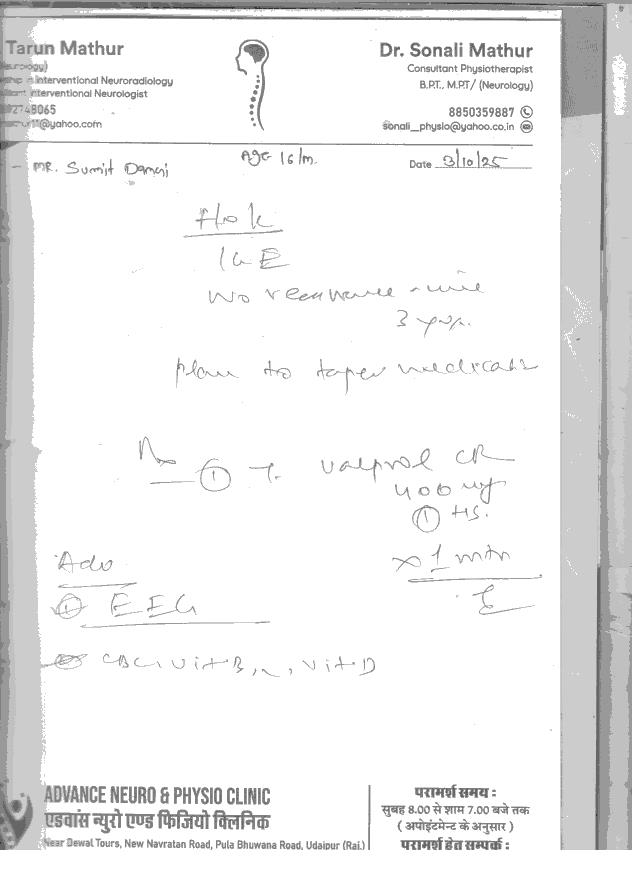 Tarun Mathur
Interventional Neuroradiology
Interventional Neurologist
92748065
@yahoo.com
Dr. Sonali Mathur
Consultant Physiotherapist
B.P.T., M.P.T/ (Neurology)
8850359887
sonali_physio@yahoo.co.in
MR. Sumit
Age 16/m.
Date 3/10/25
H/o k
IGE
No recurrence since
3 yrs.
plan to taper
① T. valprol CR
400 mg
① HS.
x 1 mth
Adv
① EEG
CBC, Vit B12, Vit D
ADVANCE NEURO & PHYSIO CLINIC
एडवांस न्यूरो एण्ड फिजियो क्लिनिक
Near Dewal Tours, New Navratan Road, Pula Bhuwana Road, Udaipur (Raj.)
परामर्श समय :
सुबह 8.00 से शाम 7.00 बजे तक
( अपोइंटमेन्ट के अनुसार )
परामर्श हेतु सम्पर्क :